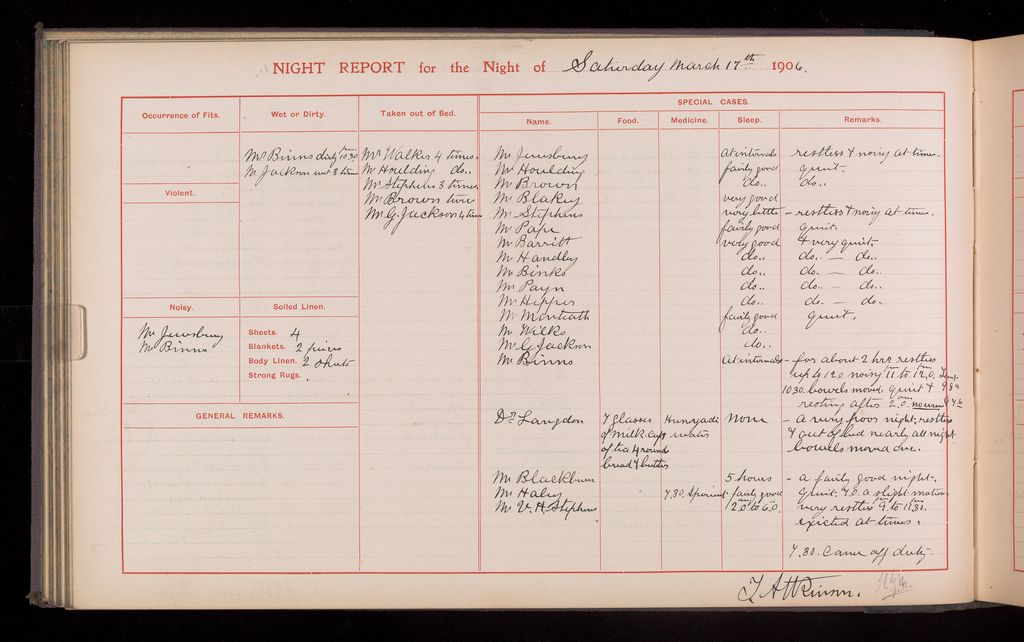 NIGHT REPORT for the Night of Saturday March 17th 1906.
SPECIAL CASES.
Occurrence of Fits.
Wet or Dirty.
Taken out of Bed.
Name.
Food.
Medicine.
Sleep.
Remarks.
Mr Binns dirty 10.30
Mr Jackson wet 3 times
Violent.
Mr Walker 4 times.
Mr Houlding do..
Mr Stephens 3 times
Mr Brown twice
Mr G. Jackson 4 times
Noisy.
Mr Jewsbury
Mr Binns
Soiled Linen.
Sheets. 4
Blankets. 2 pieces
Body Linen. 2 shirts
Strong Rugs.
GENERAL REMARKS.
Mr Jewsbury at intervals restless & noisy at times.
Mr Houlding fairly good quiet.
Mr Brown do.. do..
Mr Blakey very good
Mr Stephens very little – restless & noisy at times.
Mr Pape fairly good quiet.
Mr Barritt very good & very quiet.
Mr Handley do.. do. — do..
Mr Binks do.. do. — do..
Mr Payn do.. do. – do..
Mr Hepper do.. do – do.
Mr Monteath fairly good quiet.
Mr Wilks do..
Mr G. Jackson do..
Mr Binns at intervals – for about 2 hrs restless
up to 12.0. noisy 11 pm to 12.0.
10.30. bowels moved. quiet &
resting after 2.0.
Dr Langdon 7 glasses Hunyadi none – a very poor night, restless
of milk cup water & out of bed nearly all night
of tea 4 round bowels moved once.
bread & butter
Mr Blackburn 5 hours – a fairly good night.
Mr Haley 7.30. fairly good quiet. 7.0. a slight motion
Mr V. H. Stephens 12.0 to 6.0. very restless 9 to 11.30.
excited at times.
7.30. Came off duty.
T. Atkinson.